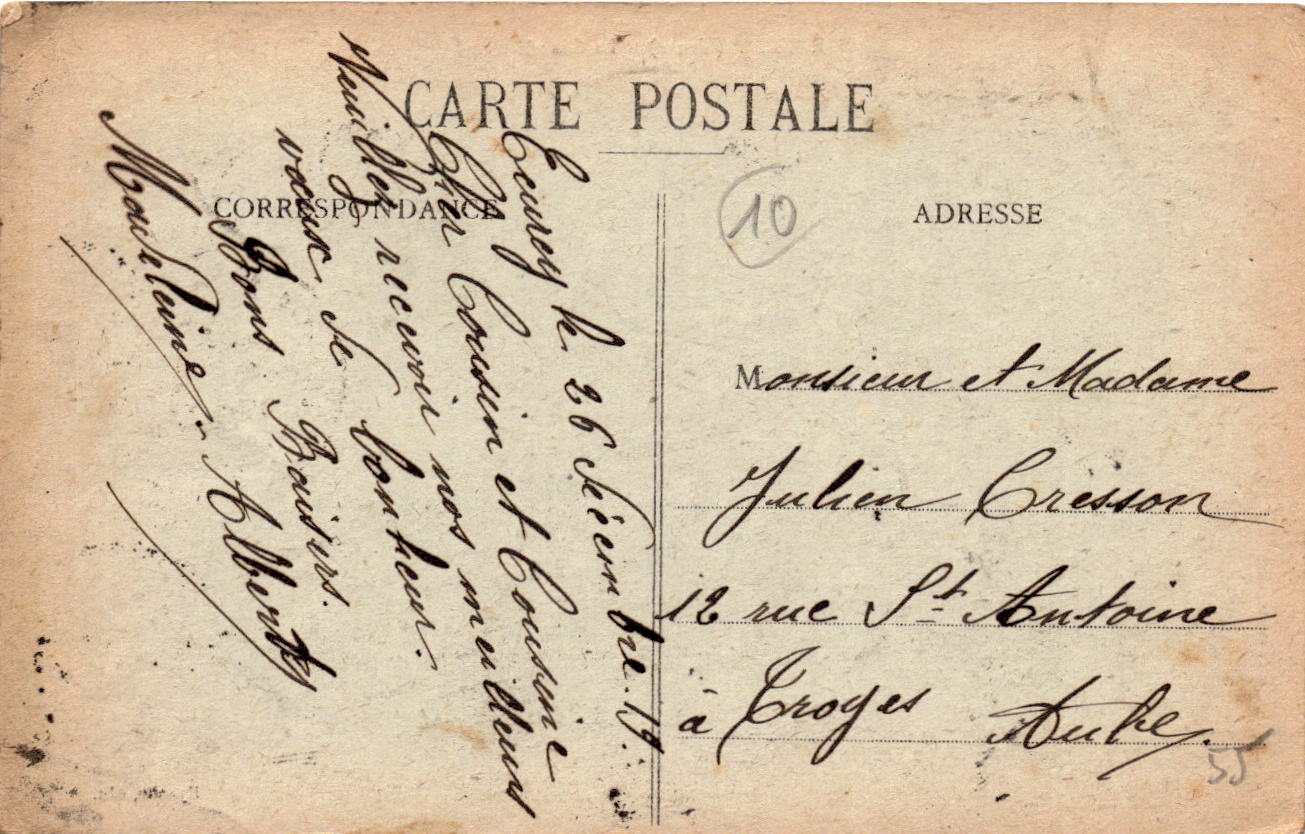 CARTE POSTALE
CORRESPONDANCE
ADRESSE
10
le 26 décembre. 19.
Cher Cousin et Cousine
Veuillez recevoir nos meilleurs
vœux de bonheur.
Bons Baisers.
Madeleine. Albert
Monsieur et Madame
Julien Cresson
12 rue St Antoine
à Troyes Aube.
55